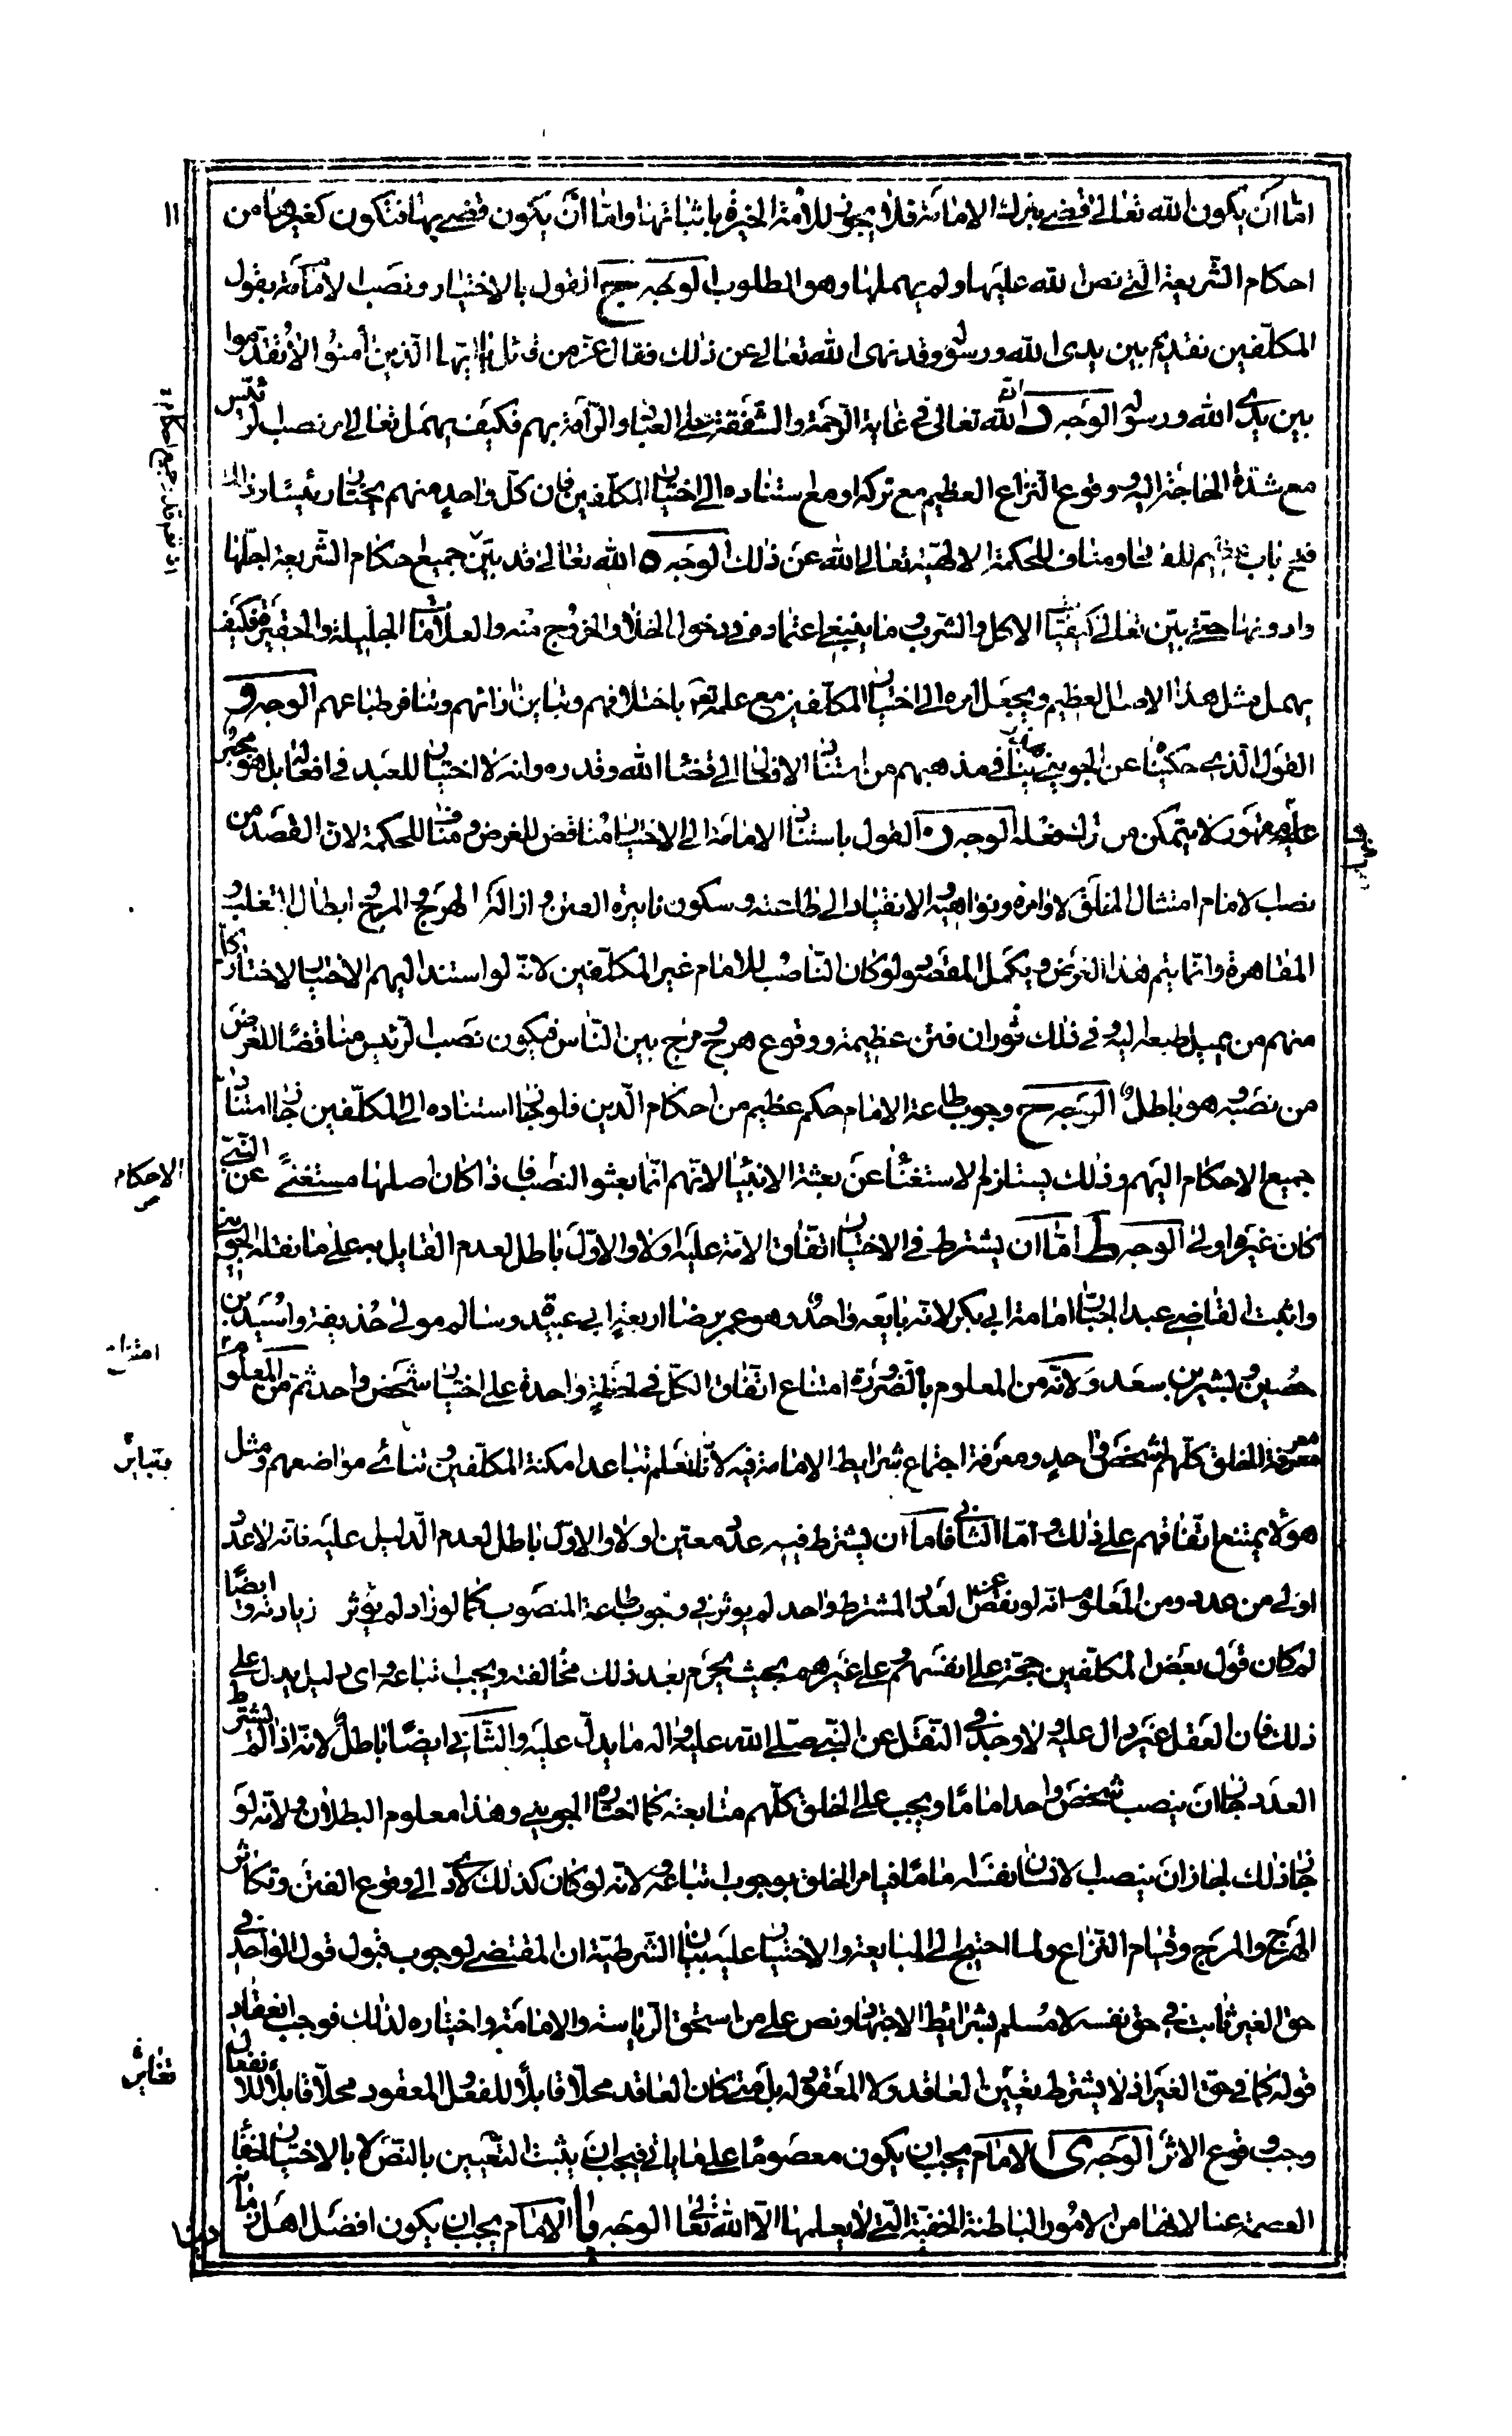 اما ان يكون الله تعالى قضى بترك الامامة فلا يجوز للامة الخيرة باثباتها واما ان يكون قضى بها فتكون كغيرها من
احكام الشريعة التى نص الله عليها ولم يهملها وهو المطلوب الوجه ج القول بالاختيار ونصب الامامة بقول
المكلّفين تقديم بين يدى الله ورسوله وقد نهى الله تعالى عن ذلك فقال عز من قائل يا ايها الذين امنوا لا تقدموا
بين يدى الله ورسوله الوجه د ان الله تعالى فى غاية الرحمة والشفقة على العباد والرأفة بهم فكيف يهمل تعالى امر نصب الرئيس
مع شدة الحاجة اليه ووقوع النزاع العظيم مع تركه او مع استناده الى اختيار المكلفين فان كل واحد منهم يختار رئيسا وذلك
فتح باب عظيم للفساد ومناف للحكمة الالهية تعالى الله عن ذلك الوجه ه الله تعالى قد بين جميع احكام الشريعة اجلها
وادونها حتى بين تعالى كيفية الاكل والشرب وما ينبغى اعتماده فى دخول الخلا والخروج منه والعلامات الجليلة والحقيرة فكيف
يهمل مثل هذا الاصل العظيم ويجعل امره الى اختيار المكلفين مع علمه تعم باختلافهم وتباين ارائهم وتنافر طباعهم الوجه و
القول الذى حكيناه عن الجوينى ينافى مذهبهم من استناد الافعال الى قضاء الله وقدره وانه لا اختيار للعبد فى افعاله بل هو مجبور
عليها مقهور لا يتمكن من ترك فعله الوجه ز القول باستناد الامامة الى الاختيار مناقض للغرض ومناف للحكمة لان القصد من
نصب الامام امتثال الخلق لاوامره ونواهيه والانقياد الى طاعته وسكون نايرة الفتن وازالة الهرج والمرج وابطال التغلب
المقاهرة وانما يتم هذا الغرض ويكمل المقصود لو كان الناصب للامام غير المكلفين لانه لو استند اليهم الاختيار لاختار كل
منهم من يميل طبعه اليه وفى ذلك ثوران فتن عظيمة ووقوع هرج ومرج بين الناس فيكون نصب الرئيس مناقضا للغرض
من نصبه وهو باطل الوجه ح وجوب طاعة الامام حكم عظيم من احكام الدين فلو جاز استناده الى المكلفين جاز استناد
جميع الاحكام اليهم وذلك يستلزم الاستغناء عن بعثة الانبياء لانهم انما بعثوا لنصب فاذا كان اصلها مستغنى عن النبى
كان غيره اولى الوجه ط اما ان يشترط فى الاختيار اتفاق الامة عليه اولا والاول باطل لعدم القايل به على ما نقله الجوينى
واثبت القاضى عبد الجبار امامة ابى بكر لانه بايعه واحد وهو عمر برضا اربعة ابى عبيدة وسالم مولى حذيفة واسيد بن
حصين وبشير بن سعد ولانه من المعلوم بالضرورة امتناع اتفاق الكل فى لحظة واحدة على اختيار شخص واحد ثم من المعلوم
معرفة الخلق كلهم لشخص واحد ومعرفة اجتماع شرايط الامامة فيه لانا نعلم تباعد امكنة المكلفين وتنائى مواضعهم ومثل
هؤلاء يمتنع اتفاقهم على ذلك واما الثانى فاما ان يشترط فيه عدد معين اولا والاول باطل لعدم الدليل عليه فانه لا عدد
اولى من عدد ومن المعلوم انه لو نقص عن العدد المشترط واحد لم يوثر فى وجوب طاعة المنصوب كما لو زاد لم يوثر زيادته وايضا
لم كان قول بعض المكلفين حجة على انفسهم وعلى غيرهم بحيث يحرم بعد ذلك مخالفته ويجب اتباعه واى دليل يدل على
ذلك فان العقل غير دال عليه ولا وجد فى النقل عن النبى صلى الله عليه واله ما يدل عليه والثانى ايضا باطل لانه اذا لم يشترط
العدد جاز ان ينصب شخص واحد اماما ويجب على الخلق كلهم متابعته كما اختاره الجوينى وهذا معلوم البطلان ولانه لو
جاز ذلك لجاز ان ينصب الانسان نفسه اماما فيامر الخلق بوجوب اتباعه ولانه لو كان كذلك لادى الى وقوع الفتن وتكاثر
الهرج والمرج وقيام النزاع ولما احتيج الى المبايعة والاختيار عليه بيان الشرطية ان المقتضى لوجوب قبول قول الواحد فى
حق الغير ثابت فى حق نفسه لانه مسلم بشرائط الاجتهاد ونص على من استحق الرياسة والامامة واختياره لذلك فوجب انعقاد
قوله كما فى حق الغير اذ لا يشترط تغيير العاقد ولا المعقود له بل متى كان العاقد محلا قابلا للفعل والمعقود محلا قابلا للانفعال
وجب وقوع الاثر الوجه ى الامام يجب ان يكون معصوما على ما ياتى فيجب ان يثبت التعيين بالنص لا بالاختيار لخفاء
العصمة عنا لانها من الامور الباطنة الخفية التى لا يعلمها الا الله تعالى الوجه يا الامام يجب ان يكون افضل اهل زمانه
١١
الاحكام
امتناع
بتباين
تغاير
دينا